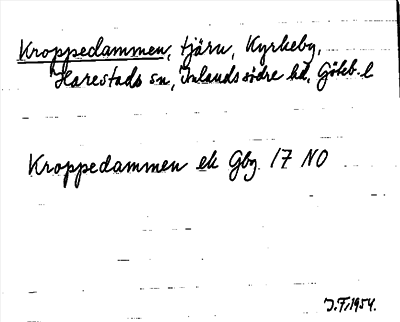 Kroppedammen, tjärn, Kyrkeby,
Harestads sn, Inlands södre hd, Göteb. l
Kroppedammen ek Gbg. 17 NO
J.F. 1954.